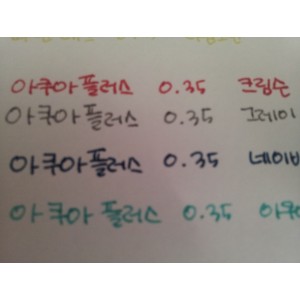 아쿠아플러스 0.35 크림슨
아쿠아플러스 0.35 그레이
아쿠아플러스 0.35 네이비
아쿠아플러스 0.35 아쿠